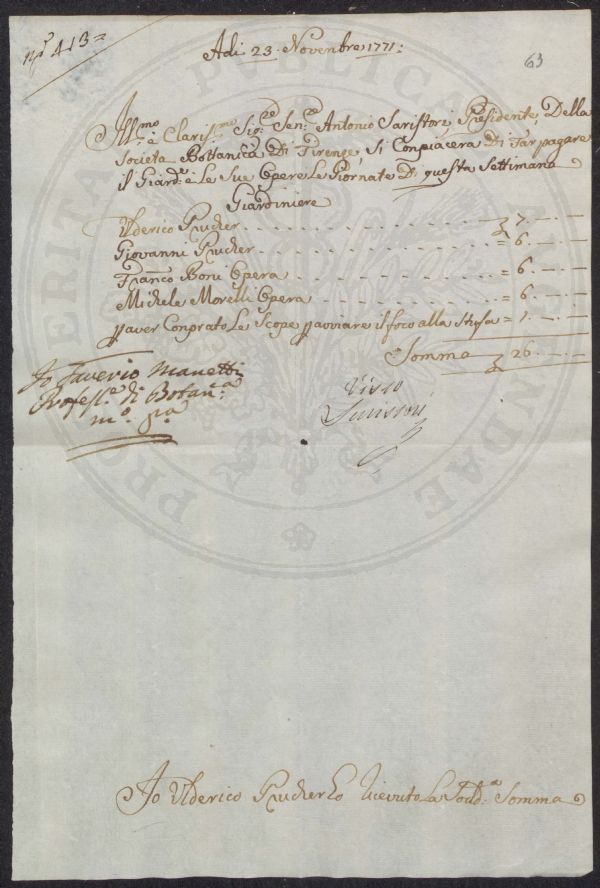 nº 413=
Adi 23. Novembre 1771:
63
Ill.mo e Claris.mo Sig.re Sen.re Antonio Saristori Presidente Della
Società Bottanica Di Firenze, Si Conpiacerà Di Far pagare
il Giard.e e Le Sue Opere Le Giornate Di questa Settimana
Giardiniere
Ulderico Prucker 7.
Giovanni Prucker = 6.
Franco Boni Opera = 6.
Michele Morelli Opera = 6.
p aver Conprato Le Scope p avviare il foco alla Stufa = 1.
Somma 26.
Io Saverio Manetti
Profess.e di Botan.ca
m.o p.a
Visto
Io Ulderico Prucker ò Ricevuto La Sud.a Somma
PUBLICAE
PROSPERITATI